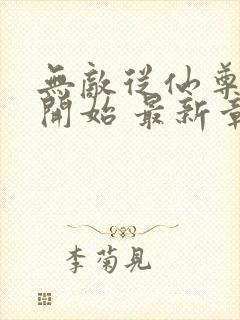 無敵從仙尊
開始 最新章
李菊見